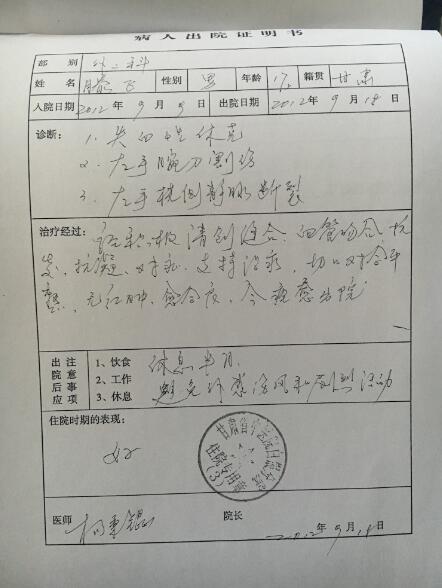 病人出院证明书
部 别 外二科
姓 名 滕飞 性别 男 年龄 17 籍贯 甘肃
入院日期 2012 年 9 月 9 日 出院日期 2012 年 9 月 18 日
诊断： 1. 失血性休克
2. 左手腕刀割伤
3. 左手桡侧静脉断裂
治疗经过： 清创缝合、血管吻合、抗
炎、抗凝、对症、支持治疗，切口对合平
整，无红肿，愈合良，今痊愈出院
出 注 1、饮食 休息半月，
院 意 2、工作 避免外感
后 事 3、休息 剧烈活动
应 项
住院时期的表现：
好
住院专用章
(3)
医师 院长 2012 年 9 月 18 日